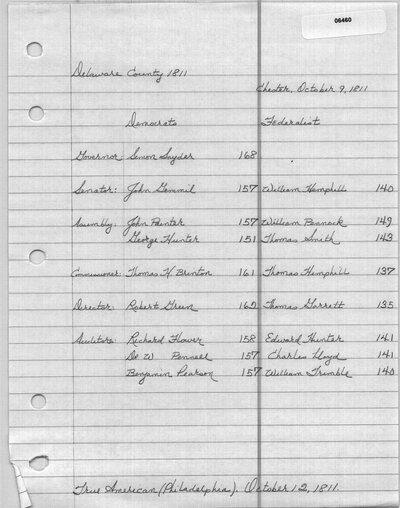 06460
Delaware County 1811
Chester, October 9, 1811
Democrats Federalist
Governor: Simon Snyder 168
Senator: John Gemmil 157 William Hemphill 140
Assembly: John Painter 157 William Pennock 149
George Hunter 151 Thomas Smith 143
Commissioner: Thomas H. Brinton 161 Thomas Hemphill 137
Director: Robert Green 162 Thomas Garrett 135
Auditors: Richard Flower 158 Edward Hunter 141
De W Pennell 157 Charles Lloyd 141
Benjamin Pearson 157 William Trimble 140
True American (Philadelphia). October 12, 1811.